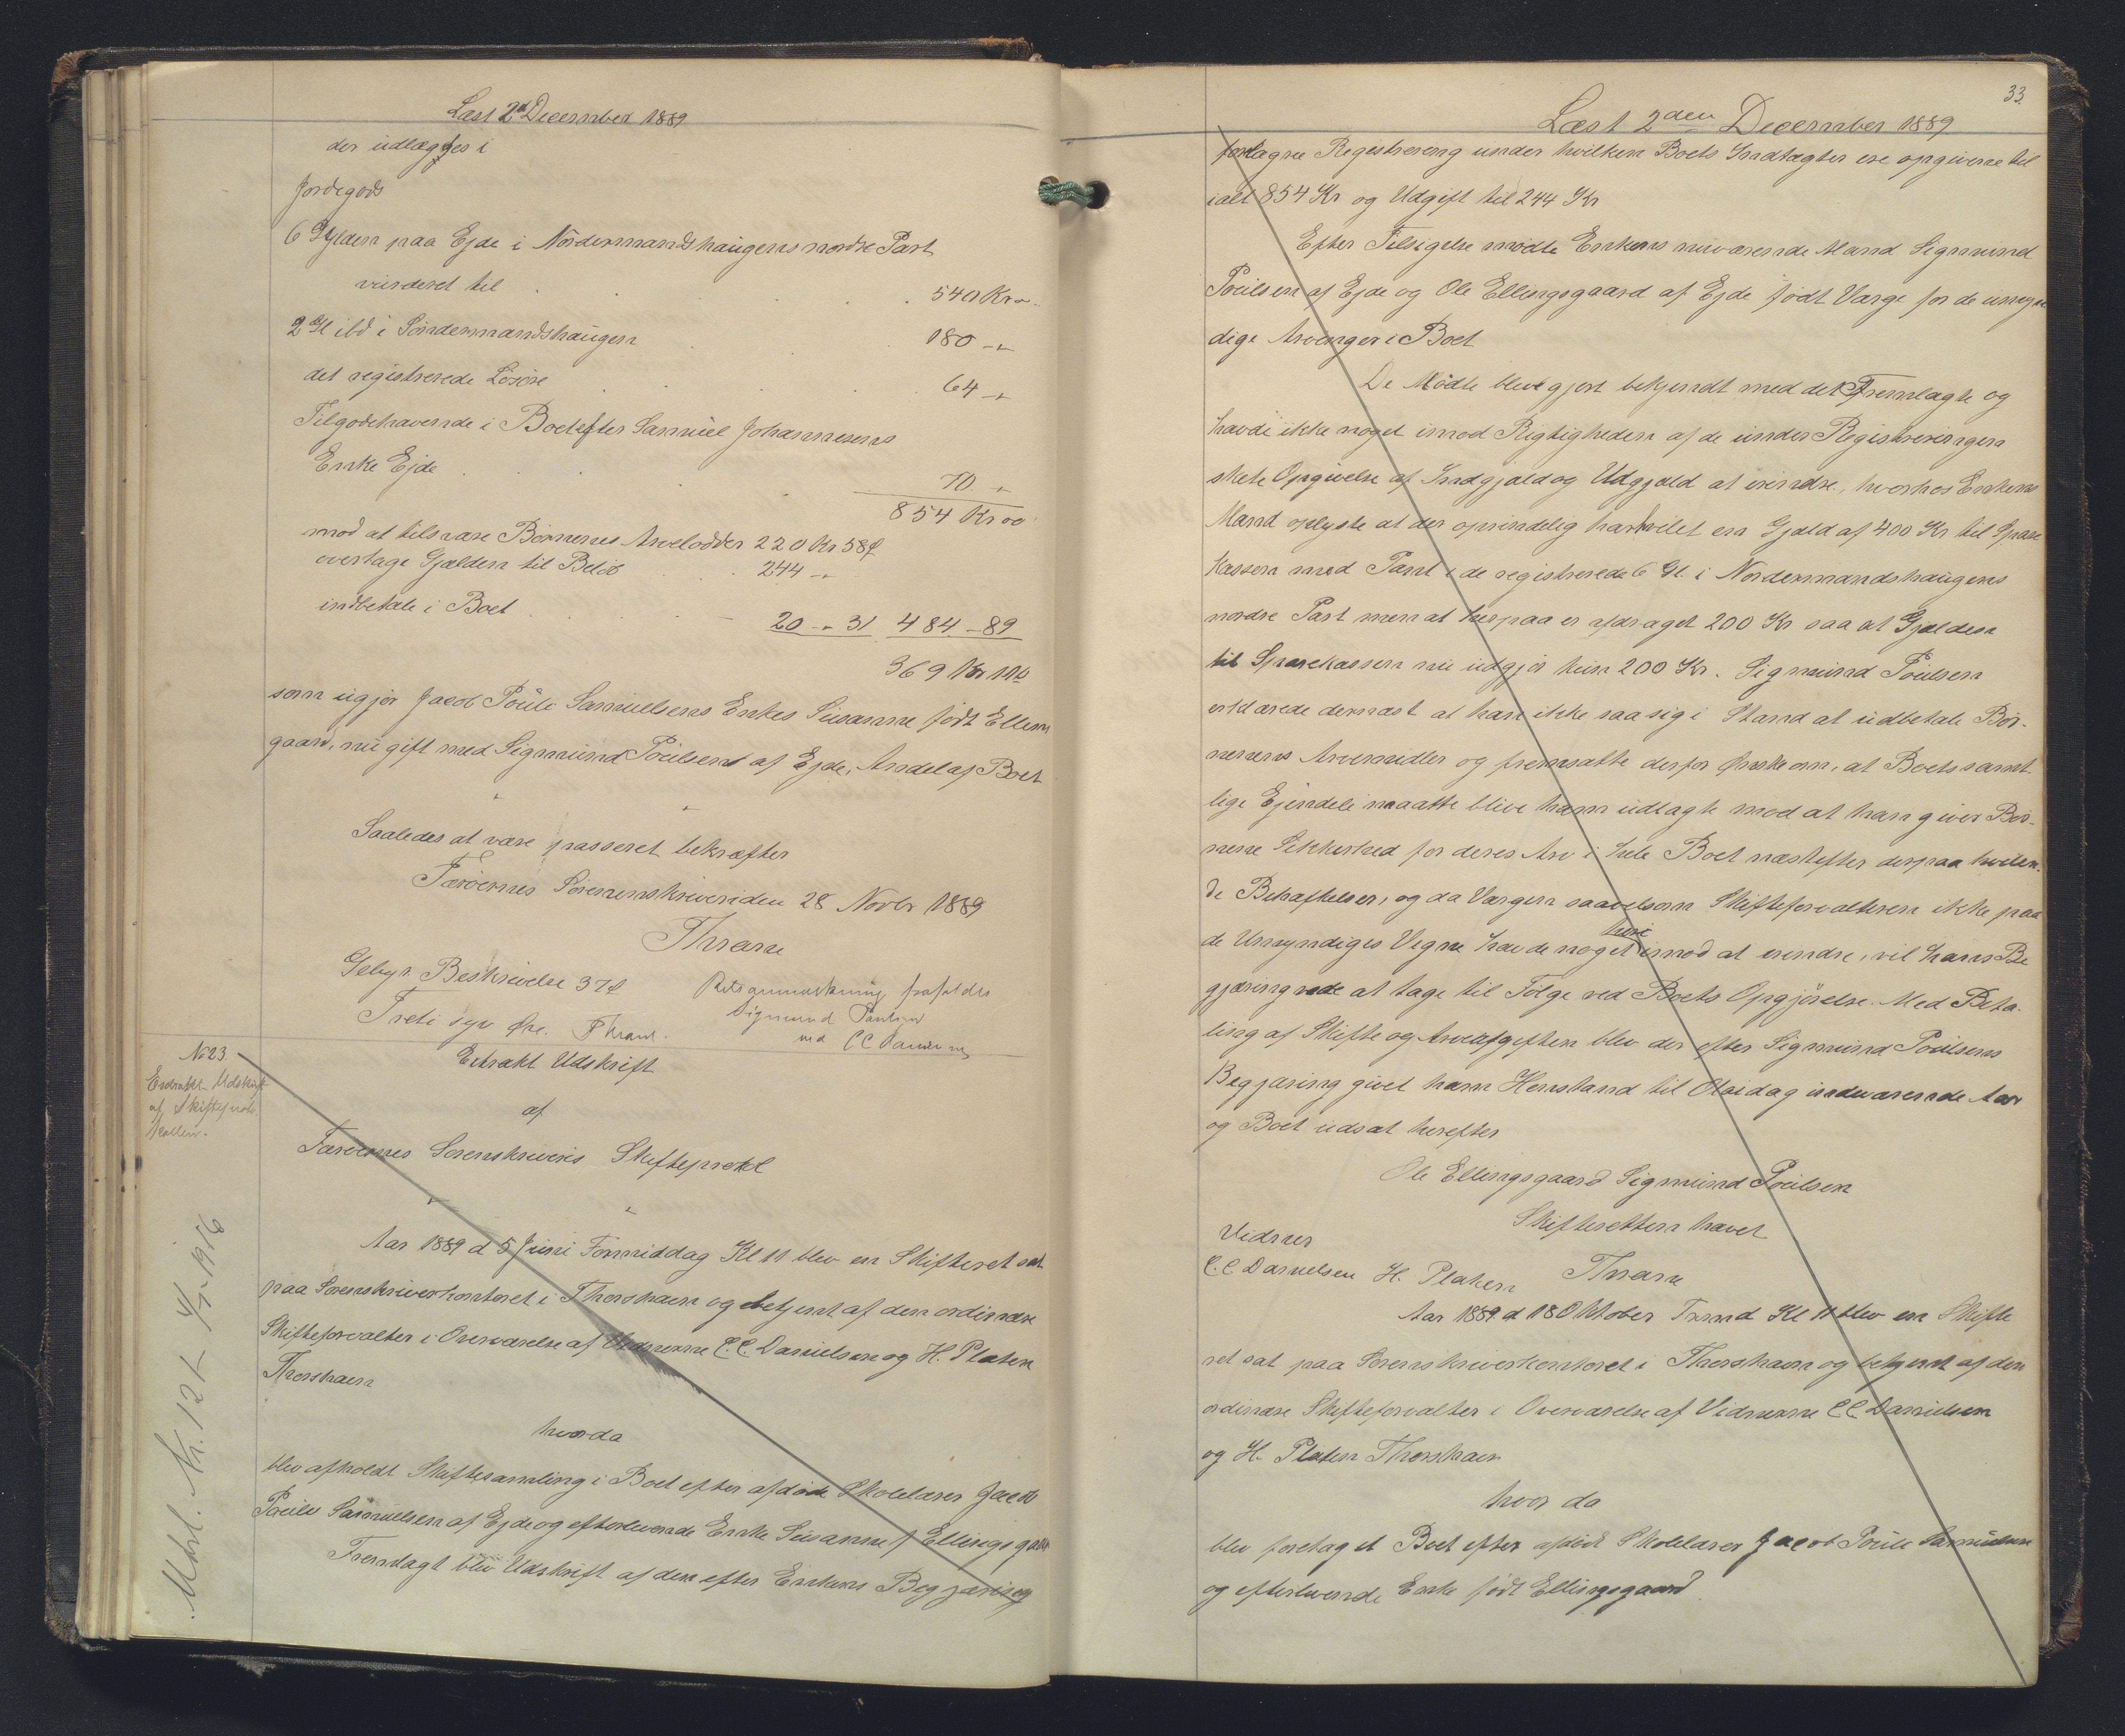 Læst 2d December 1889
der udlægges i
Jordegods
6 Gylden paa Ejde i Nördermandshaugens nordre Part
vurderet til 540 Kr "
2 Gl ibd i Söndermandshaugen 180 - "
det registrerede Lösöre 64 - "
Tilgodehavende i Boet efter Samuel Johannesens
Enke Ejde 70 - "
854 Kr 00
mod at tilsvare Börnenes Arvelodder 220 Kr 58
overtage Gjælden til Belöb 244 - "
indbetale i Boet 20 - 31 484 - 89
369 Kr
som ugjör Jacob Poule Samuelsens Enkes Susanne födt Ellings
gaard, nu gift med Sigmund Poulsens af Ejde, Andel af Boet
Saaledes at være passeret bekræfter
Færöernes Sorenskriveri den 28 Novbr 1889
Thrane
Gebyr. Beskrivelse 37
Treti syv Öre. Thrane.
Retsanmærkning frafaldes
Sigmund Poulsen
ved CC Danielsen
No 23.
Extrakt Udskrift
af Skifteproto
kollen.
Matrl. Nr. 121
Extrakt Udskrift
af
Færöernes Sorenskriveris Skifteprotkl
Aar 1889 d 5 Juni Formiddag Kl 11 blev en Skifteret sat
paa Sorenskriverkontoret i Thorshavn og betjent af den ordinære
Skifteforvalter i Overværelse af Vidnerne C.C. Danielsen og H. Platen
Thorshavn
hvorda
blev afholdt Skiftesamling i Boet efter afdöde Skolelærer Jacob
Poule Samuelsen af Ejde og efterlevende Enke Susanne f Ellingsgaard
Fremlagt blev Udskrift af den efter Enkens Begjæring
33.
Læst 2den December 1889
foretagne Registrering under hvilken Boets Indtægter ere opgivne til
ialt 854 Kr og Udgift til 244 Kr
Efter Tilsigelse mödte Enkens nuværende Mand Sigmund
Poulsen af Ejde og Ole Ellingsgaard af Ejde födt Værge for de umyn
dige Arvinger i Boet
De Mödte blev gjort bekjendt med det Fremlagte og
havde ikke noget imod Rigtigheden af de under Registreringen
skete Opgivelse af Indgjæld og Udgjæld at erindre, hvorhos Enkens
Mand oplyste at der oprindelig har hvilet en Gjæld af 400 Kr til Spare
kassen med Pant i de registrerede 6 Gl. i Nordermandshaugens
nordre Part men at herpaa er afdraget 200 Kr saa at Gjælden
til Sparekassen nu udgjör kun 200 Kr. Sigmund Poulsen
erklærede dernæst at han ikke saa sig i Stand at udbetale Bör-
nenens Arvemidler og fremsatte derfor Önske om, at Boets samt
lige Ejendele maatte blive ham udlagte mod at han giver Bör-
nene Sikkerhed for deres Arv i hele Boet næstefter derpaa hvilen-
de Behæftelser, og da Værgen saavelsom Skifteforvalteren ikke paa
de Umyndiges Vegne havde noget heri imod at erindre, vil hans Be
gjæring være at tage til Fölge ved Boets Opgjörelse. Med Beta-
ling af Skifte og Arveafgiften blev der efter Sigmund Poulsens
Begjæring givet ham Henstand til Olaidag indeværende Aar
og Boet udsat herefter
Ole Ellingsgaard Sigmund Poulsen
Skifteretten hævet
Vidner
C.C Danielsen H. Platen Thrane
Aar 1889 d 18 Oktober Frmd Kl 11 blev en Skifte
ret sat paa Sorenskriverkontoret i Thorshavn og betjent af den
ordinære Skifteforvalter i Overværelse af Vidnerne CC Danielsen
og H. Platen Thorshavn
hvor da
blev foretaget Boet efter afdöd Skolelærer Jacob Poule Samuelsen
og efterlevende Enke födt Ellingsgaard